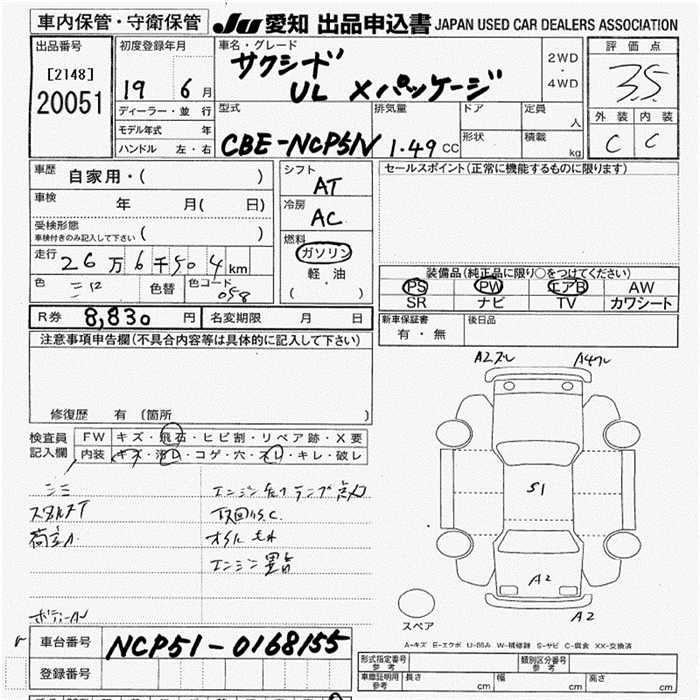 車内保管・守衛保管
JU 愛知 出品申込書 JAPAN USED CAR DEALERS ASSOCIATION
出品番号
[2148]
20051
初度登録年月
19 6月
ディーラー・並 行
モデル年式 年
ハンドル 左・右
車名・グレード
サクシード
UL Xパッケージ
2WD
・
4WD
型式
CBE-NCP51V
排気量
1.49 CC
ドア
形状
定員
人
積載
kg
評価点
3.5
外装 内装
C C
車歴
自家用・( )
車検 年 月( 日)
受検形態
車検付きのみ記入して下さい ( )
走行
26万6千504km
色 色替 色コード
058
シフト
AT
冷房
AC
燃料
ガソリン
軽・油
( )
セールスポイント(正常に機能するものに限ります)
装備品(純正品に限り○をつけてください)
PS PW エアB AW
SR ナビ TV カワシート
R券 8,830 円 名変期限 月 日
新車保証書
有・無
後日品
注意事項申告欄(不具合内容等は具体的に記入して下さい)
修復歴 有 (箇所 )
検査員
記入欄
FW キズ・飛石・ヒビ割・リペア跡・X要
内装 キズ・汚レ・コゲ・穴・スレ・キレ・破レ
エンジン
エンジン異音
A2
S1
A2
A2
スペア
A-キズ E-エクボ U-凹み W-補修跡 S-サビ C-腐食 XX-交換済
車台番号 NCP51-0168155
登録番号
形式指定番号
参考
類別区分番号
参考
車庫証明用
参考
長さ cm 幅 cm 高さ cm